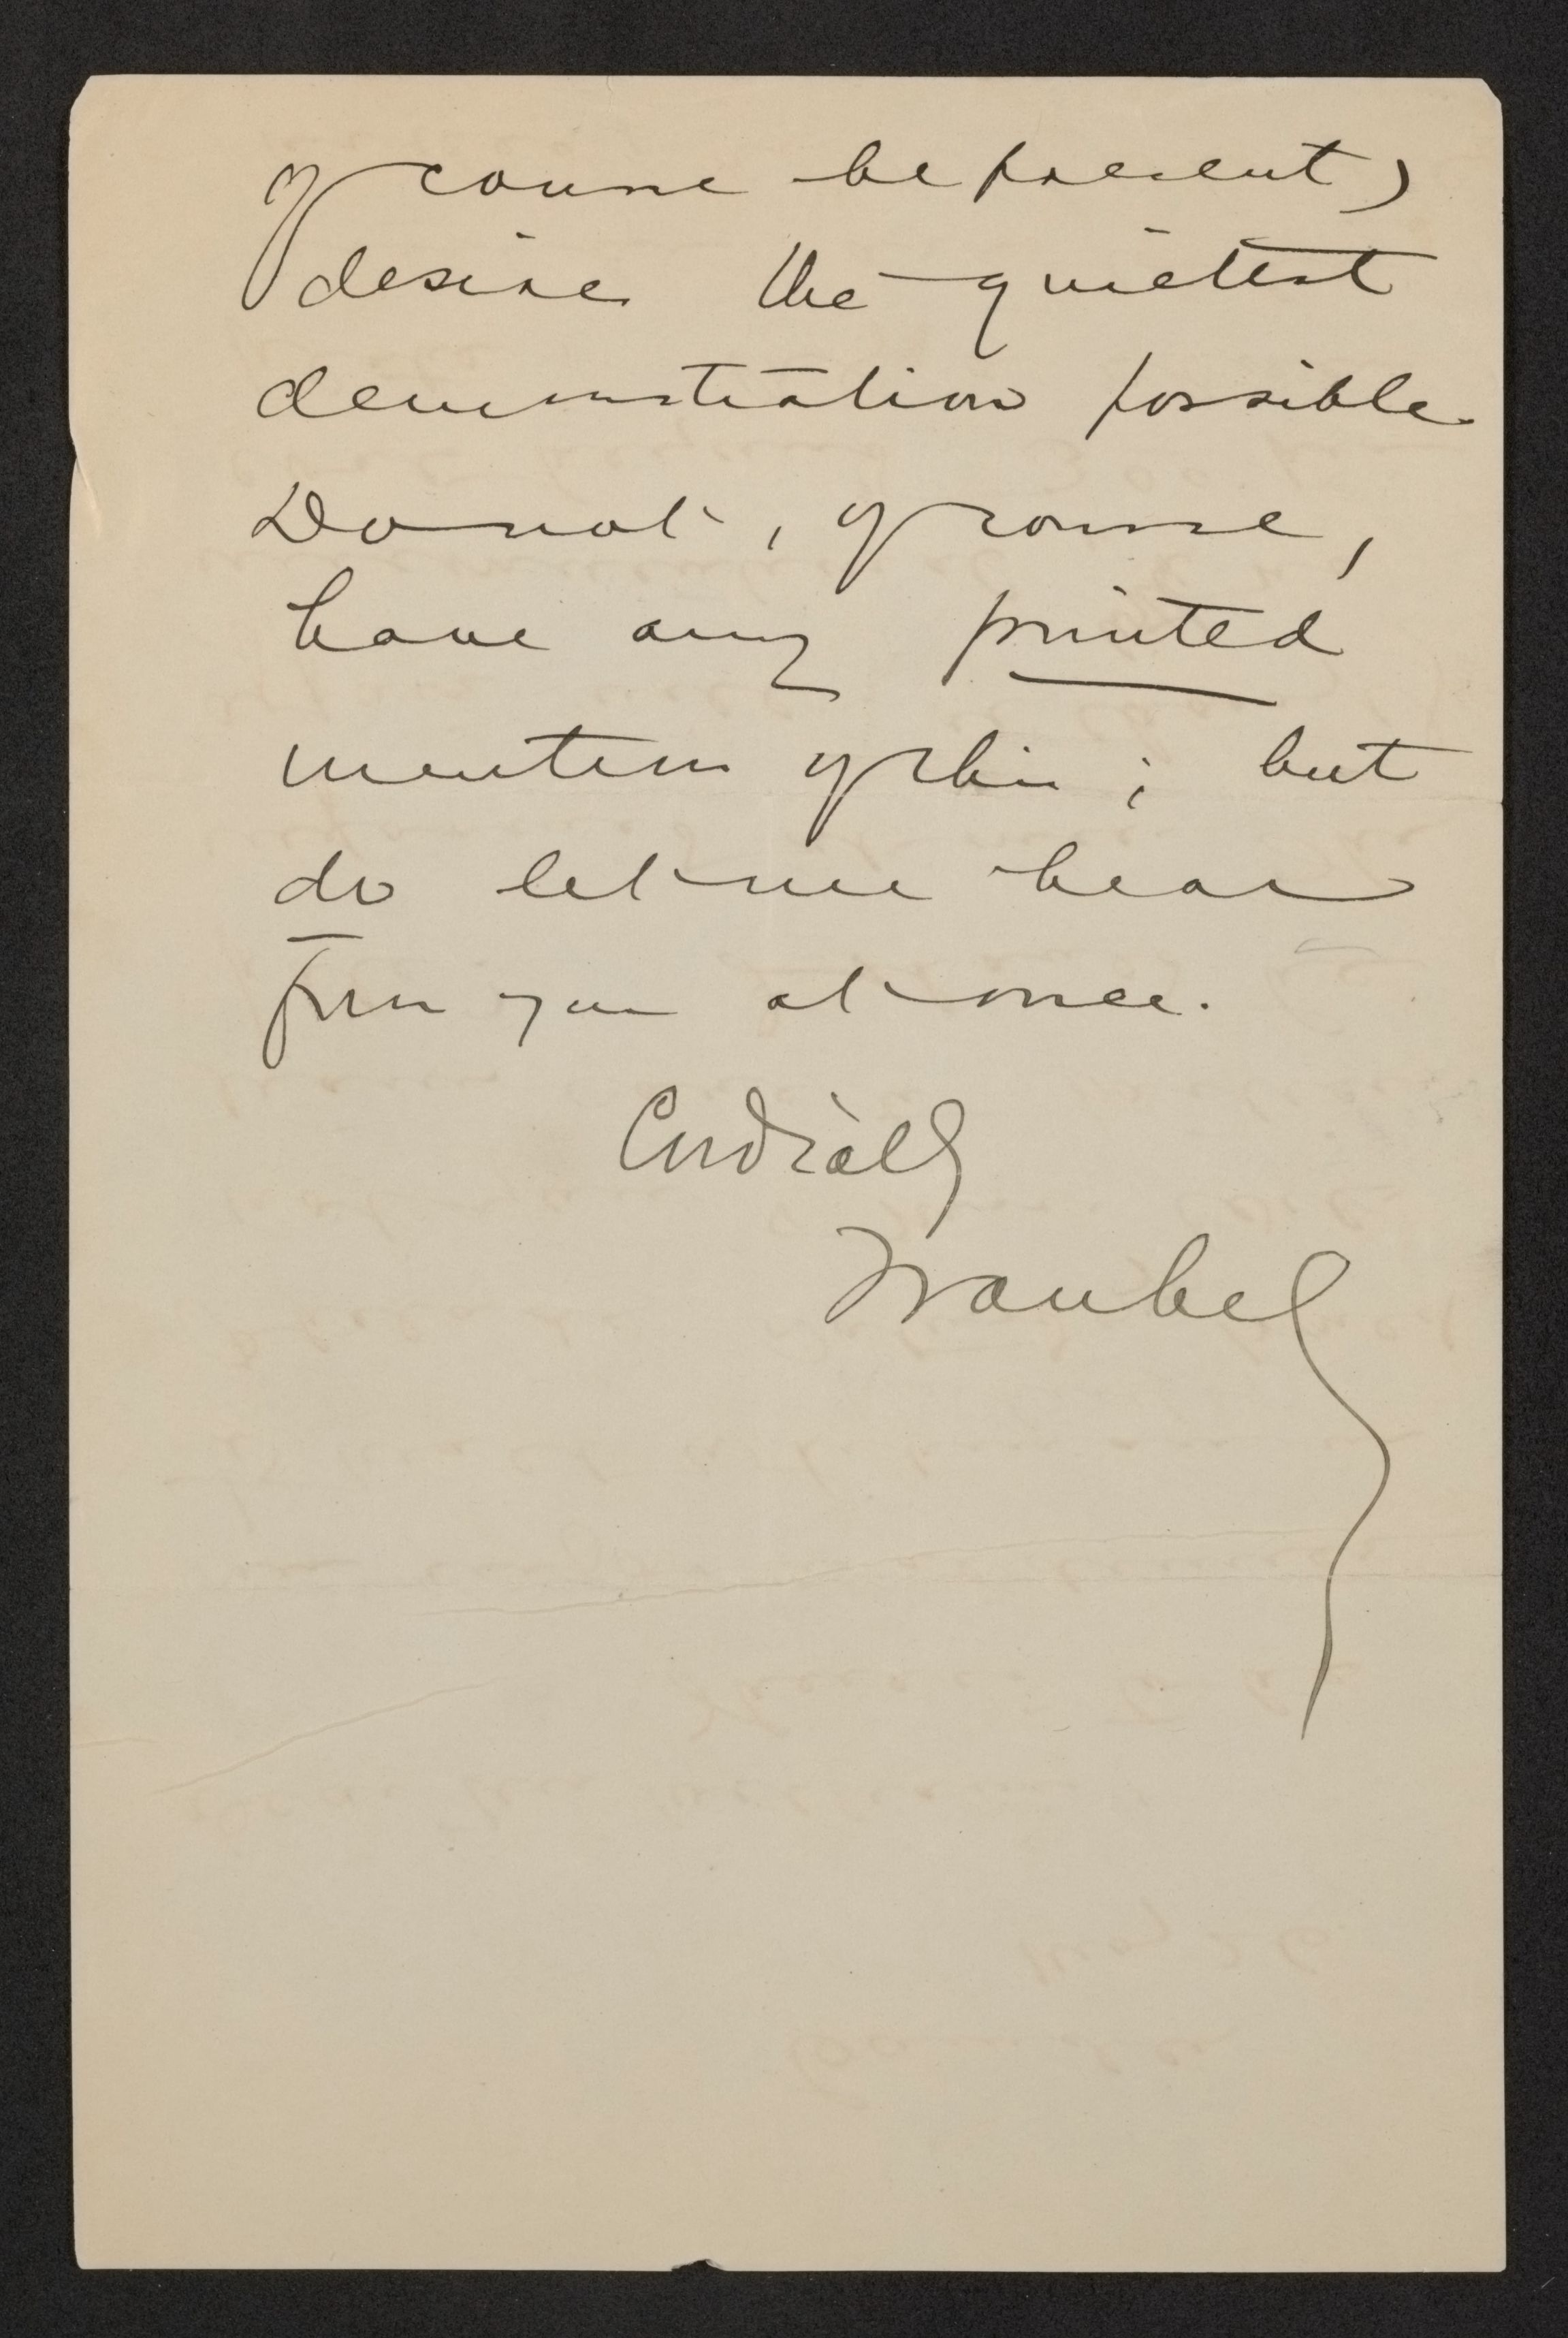 of course be present)
desire the quietest
demonstration possible.
Do not, of course,
have any printed
mention of this; but
do let me hear
from you at once.
Cordially
Traubel